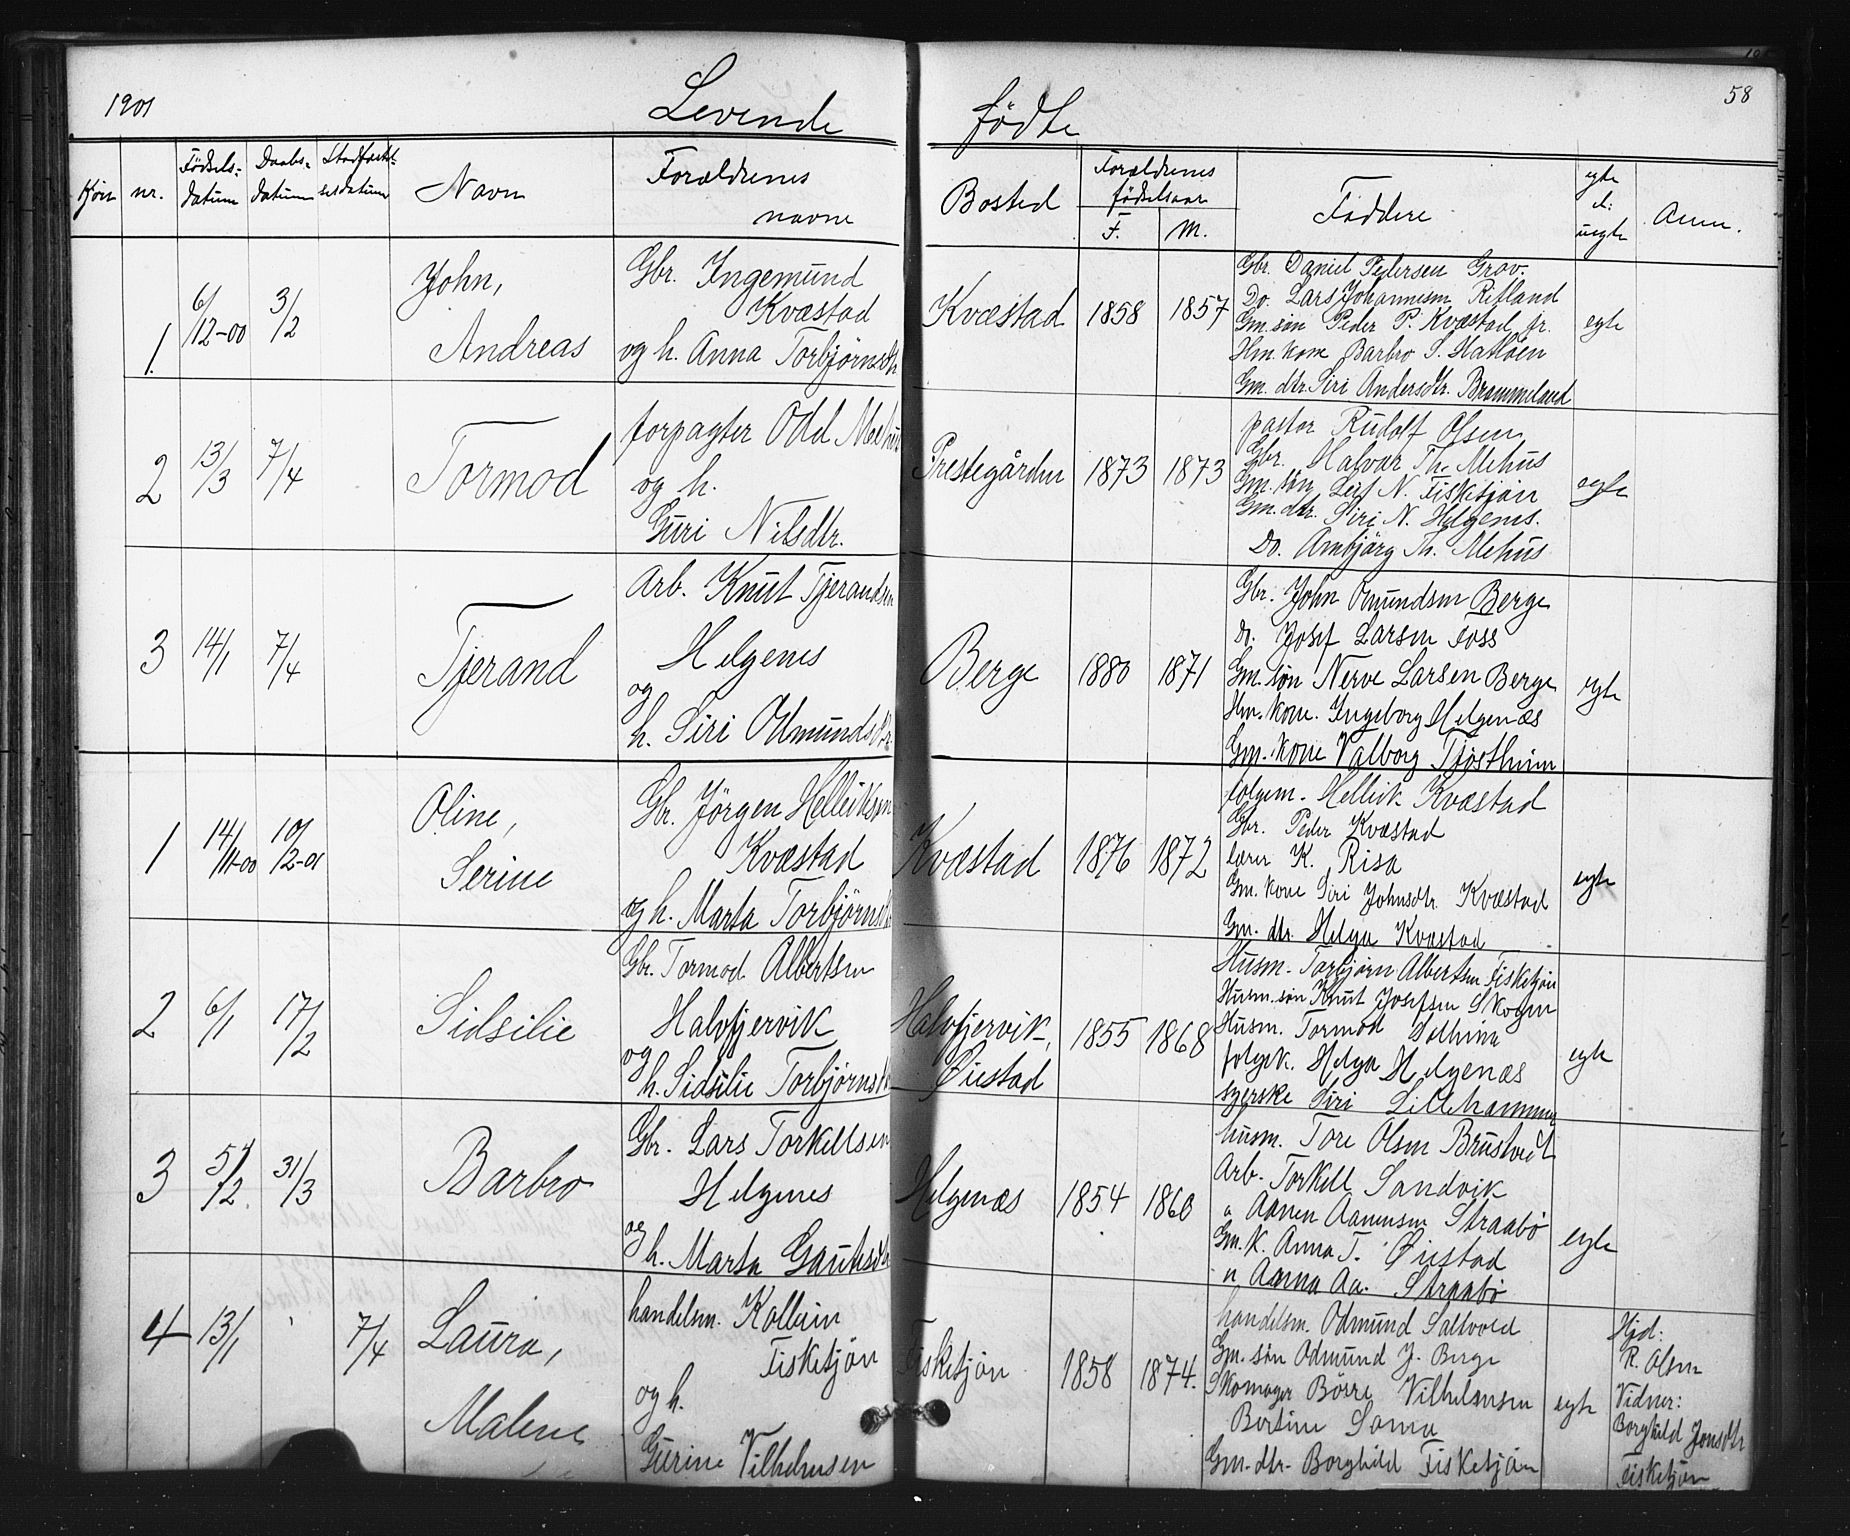 1901
Levende
fødte
58
Kjøn
nr.
Fødsels-
datum
Daabs-
datum
Stadfæst-
sesdatum
Navn
Forældrenes
navne
Bosted
Forældrenes
fødselsaar
F.
M.
Faddere
egte
el.
uegte
Anm.
1
6/12-00
3/2
John,
Andreas
Gbr. Ingemund
Kvæstad
og h. Anna Torbjørnsdtr
Kvæstad
1858
1857
Gbr. Daniel Pedersen Grov.
Do. Lars Johannesen Rifland
Gm. søn Peder P. Kvæstad jr.
Hm. kone Barbro S. Hatløen
Gm. dtr. Siri Andersdtr. Brommeland
egte
2
13/3
7/4
Tormod
forpagter Odd Mehus
og h.
Guri Nilsdtr.
Prestegården
1873
1873
pastor Rudolf Olsen
Gbr. Halvar Th. Mehus
Gm. søn Leif N. Fisketjøn
Gm. dtr. Siri N. Helgenes.
Do. Ambjørg Th. Mehus
egte
3
14/1
7/4
Tjerand
Arb. Knut Tjerandsen
Helgenes
og
h. Siri Odmundsdtr
Berge
1880
1871
Gbr. John Omundsen Berge
Do. Josef Larsen Foss
Gm. søn Nerve Larsen Berge
Hm. kone. Ingeborg Helgenæs
Gm. kone Valborg Tjøstheim
egte
1
14/11-00
10/2-01
Oline,
Serine
Gbr. Jörgen Helleiksen
Kvæstad
og h. Marta Torbjørnsdtr
Kvæstad
1876
1872
folgem. Helleik Kvæstad
Gbr. Peder Kvæstad
lærer K. Risa
Gm. kone Siri Johnsdtr. Kvæstad
Gm. dtr Helga Kvæstad
egte
2
6/1
17/2
Sidsilie
Gbr. Tormod Albertsen
Halvfjervik
og
h. Sidsilie Torbjørnsdtr
Halvfjervik,
Øiestad
1855
1868
Husm. Torbjørn Albertsen Fisketjøn
Husm. søn Knut Josefsen Skogen
Husm. Tormod Solheim
folgek. Helga Helgenæs
syerske Siri Lillehammer
egte
3
5/2
31/3
Barbro
Gbr. Lars Torkellsen
Helgenes
og
h. Marta Gautesdtr
Helgenæs
1854
1860
husm. Tore Olsen Brustveit
Arb. Torkell Sandvik
" Aanen Aanensen Straabø
Gm. k. Anna T. Øiestad
" Anna Aa. Straabø
egte
4
13/1
7/4
Laura,
Malene
handelsm. Kolbein
Fisketjøn
og h.
Gurine Vilhelmsen
Fisketjøn
1858
1874.
handelsm. Odmund Saltvold
Gm. søn Odmund J. Berge
Skomager Börre Vilhelmsen
Bertine Soma
Gm. dtr. Borghild Fisketjøn
egte
Hjd:
R. Olsen
Vidner:
Borghild Jonsdtr
Fisketjøn